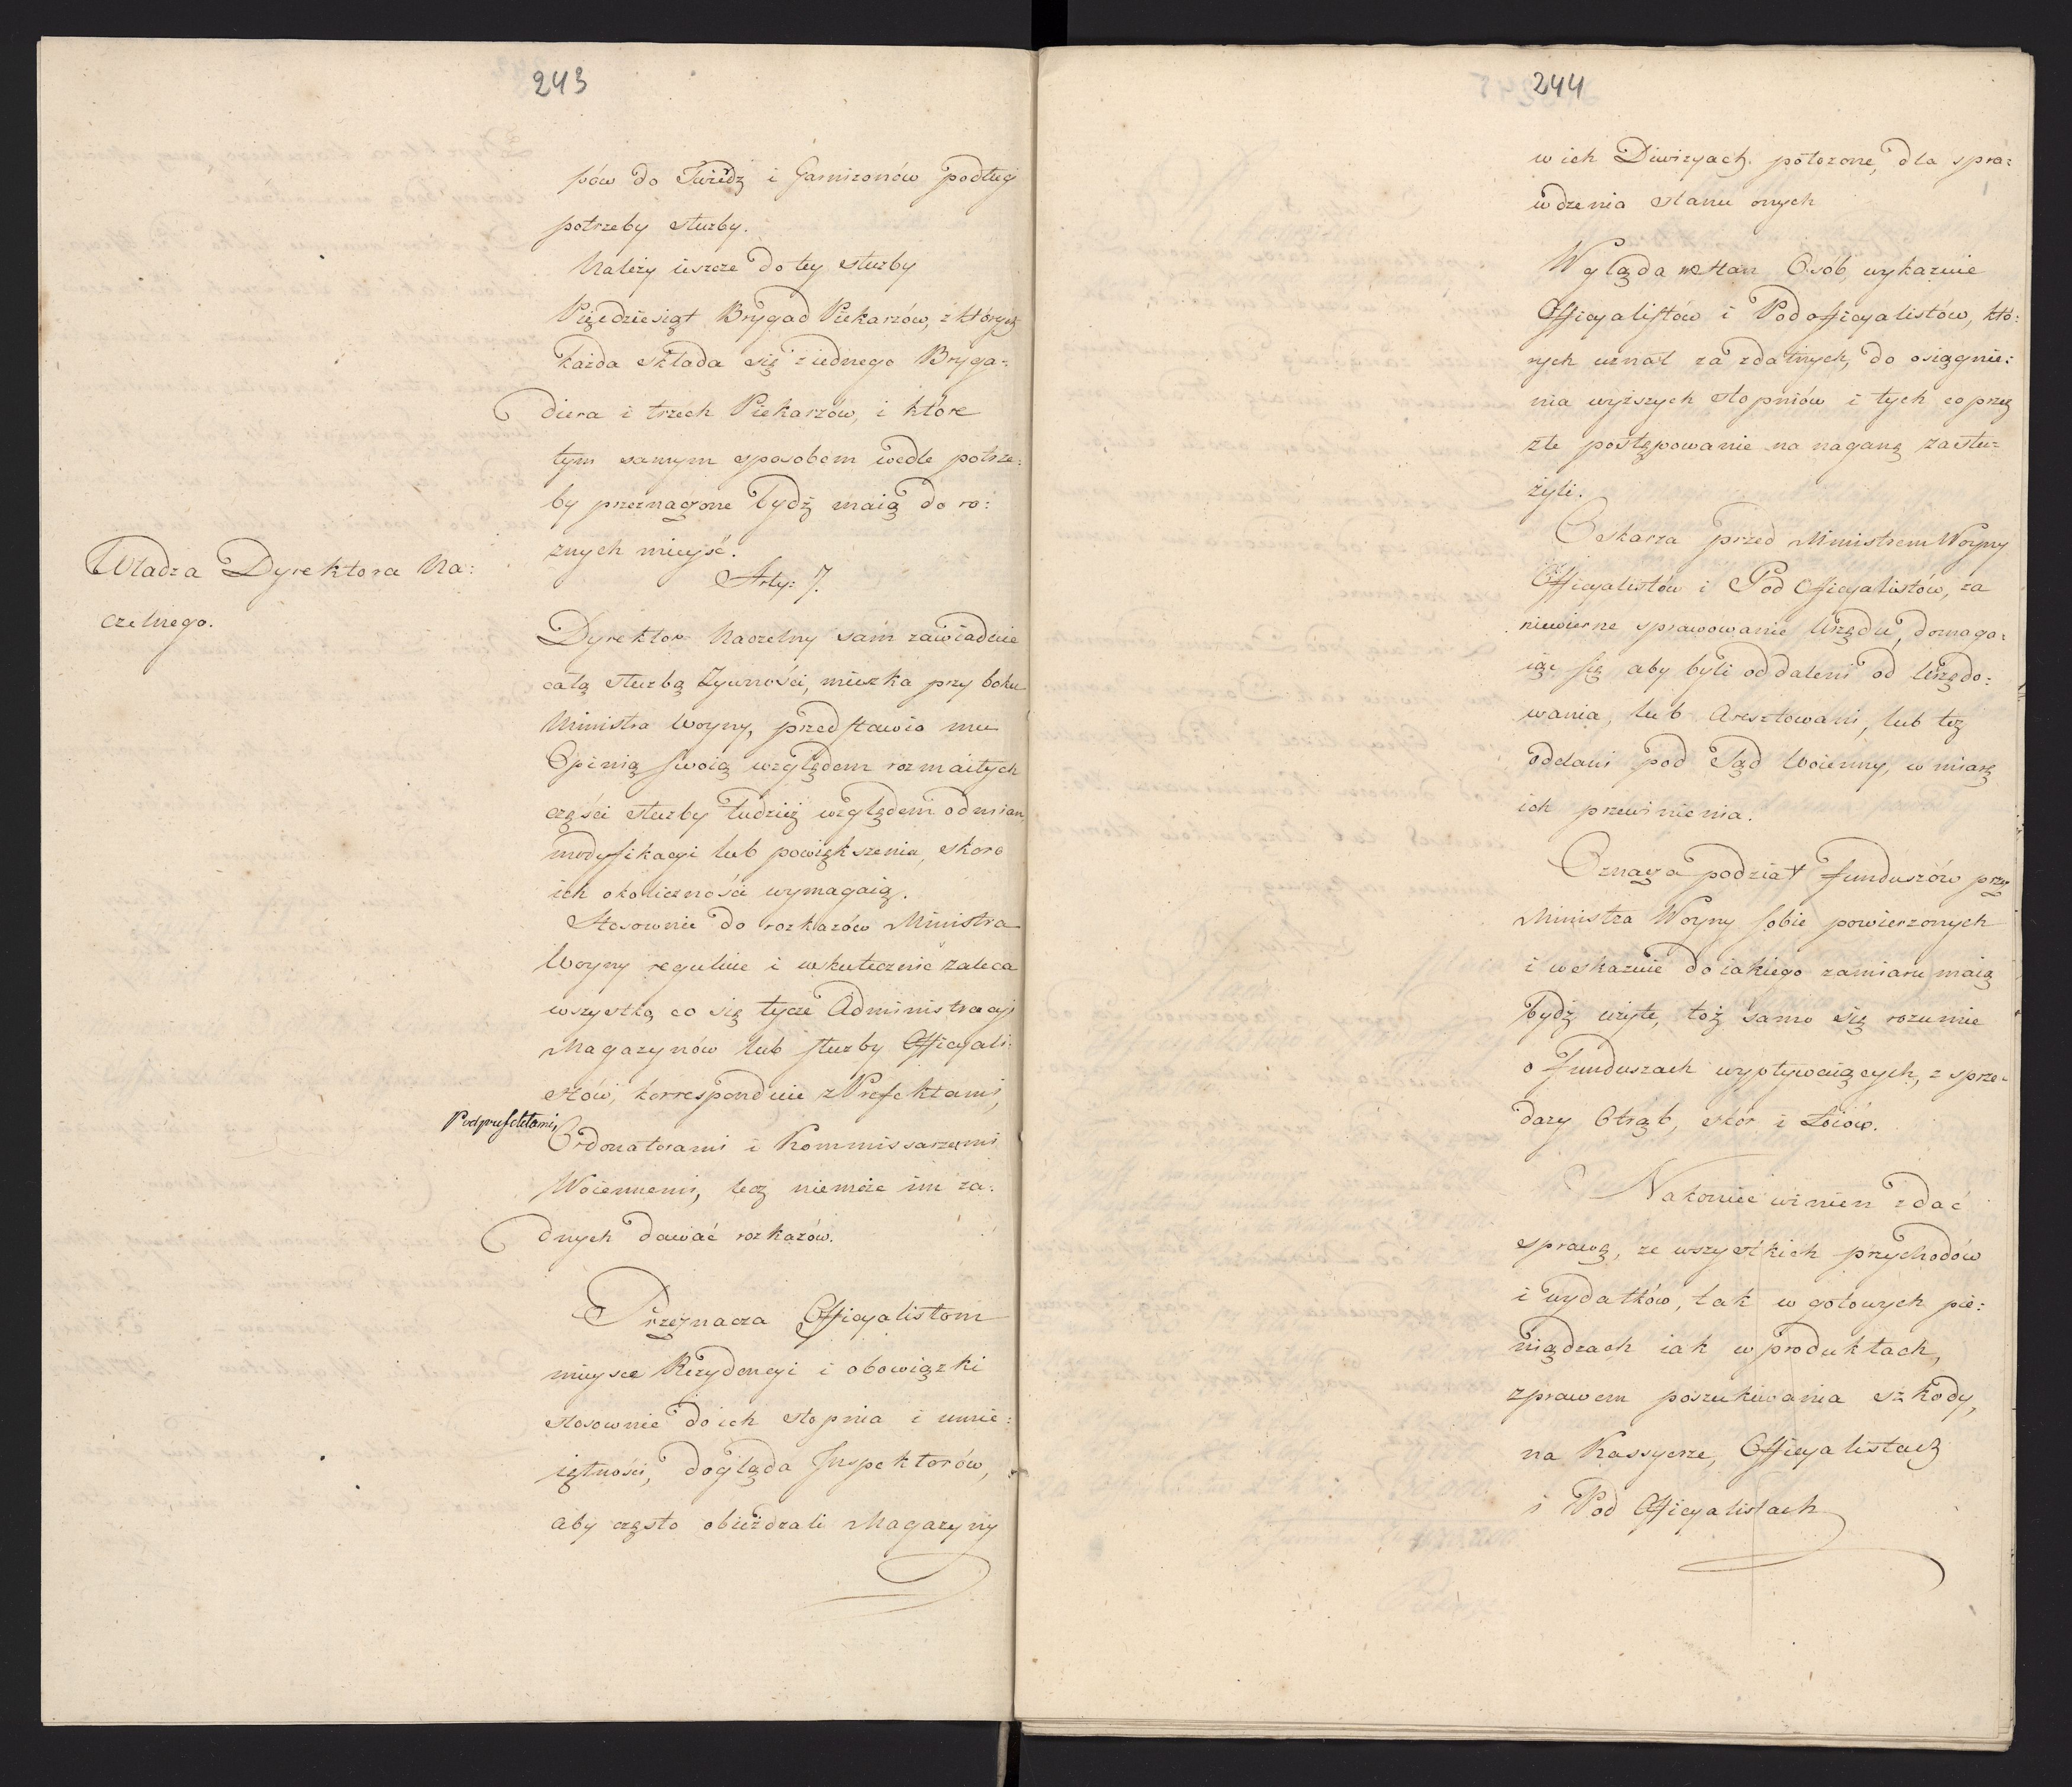 243
sów do Twiedz i Garnizonów podług
potrzeby służby.
Należy ieszcze do tey służby
Pięćdziesiąt Brygad Piekarzów, z których
każda składa się z iednego Bryga:
diera i trzech Piekarzów, i które
tym samym sposobem wedle potrze:
by przeznaczone bydź maią do ro:
znych mieysc.
Władza Dyrektora Na:
czelnego.
Arty: 7.
Dyrektor Naczelny sam zawiaduie
całą służbą Żywności, mieszka przy boku
Ministra Woyny, przedstawia mu
Opinią swoią względem rozmaitych
części służby tudzież względem odmian,
modyfikacyi lub powiększenia, skoro
ich okoliczności wymagaią.
Stosownie do rozkazów Ministra
Woyny reguluie i uskutecznić zaleca
wszystko co się tycze Administracyi
Magazynów lub służby Officyali:
stów, korresponduie z Prefektami,
Podprefektami,
Ordonatorami i Kommissarzami
Woiennemi, lecz niemoże im ża:
dnych dawać rozkazów.
Przeznacza Officyalistom
mieysce Rezydencyi i obowiązki
stosownie do ich stopnia i umie:
iętności, dogląda Inspektorów,
aby często obieżdzali Magazyny
244
w ich Diwizyach położone, dla spra:
wdzenia stanu onych
Wgląda w stan Osób, wykazuie
Officyalistów i Podofficyalistów, któ:
rych uznał za zdatnych, do osiągnie:
nia wyższych stopniów i tych co przez
złe postępowanie na naganę zasłu:
żyli.
Oskarza przed Ministrem Woyny
Officyalistów i Pod Officyalistów, za
niewierne sprawowanie Urzędu, domaga:
iąc się aby byli oddaleni od Urzędo:
wania, lub Aresztowani, lub też
oddani pod Sąd Woienny, w miarę
ich przewinienia.
Oznacza podział funduszów przez
Ministra Woyny sobie powierzonych
i wskazuie do iakiego zamiaru maią
bydź użyte, toż samo się rozumie
o funduszach wypływaiących, z sprze:
daży Otrąb, skór i Łoiów.
Nakoniec winien zdać
sprawę, ze wszystkich przychodów
i wydatków, tak w gotowych pie:
niądzach iak w produktach,
z prawem poszukiwania szkody,
na Kassyerze, Officyalistach
i Pod Officyalistach